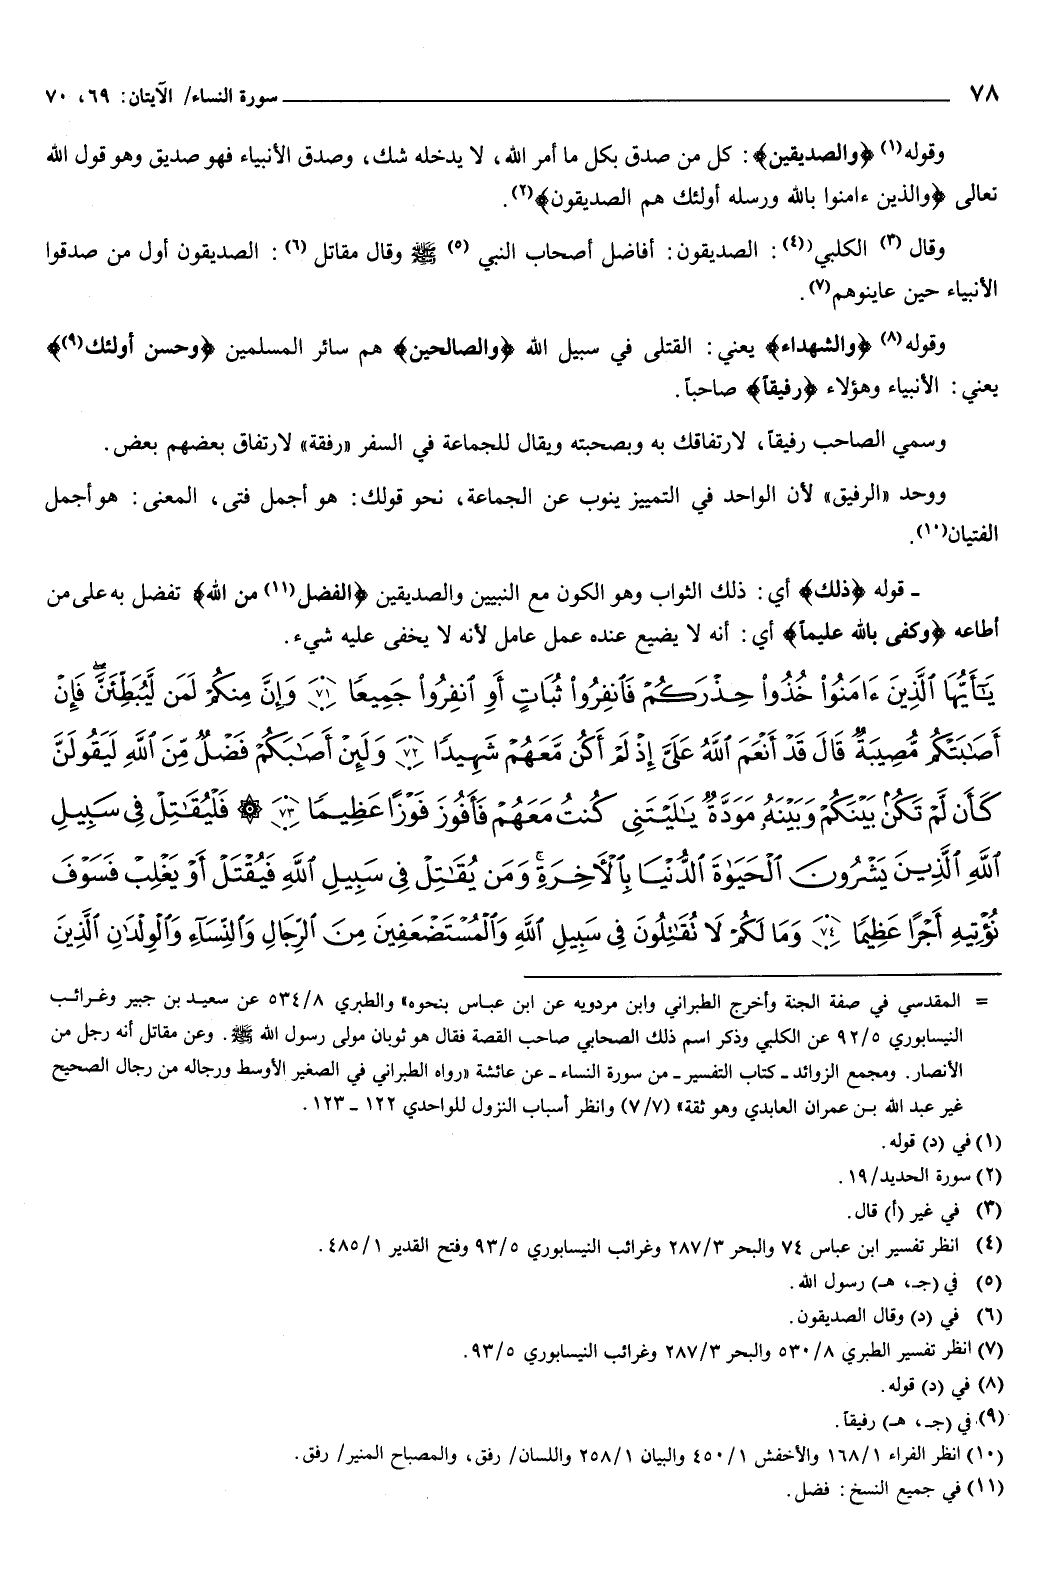 ٧٨ سورة النساء/ الآيتان: ٦٩، ٧٠
وقوله(١) ﴿والصديقين﴾: كل من صدق بكل ما أمر الله، لا يدخله شك، وصدق الأنبياء فهو صديق وهو قول الله
تعالى ﴿والذين ءامنوا بالله ورسله أولئك هم الصديقون﴾(٢).
وقال (٣) الكلبي(٤): الصديقون: أفاضل أصحاب النبي (٥) ﷺ وقال مقاتل (٦): الصديقون أول من صدقوا
الأنبياء حين عاينوهم(٧).
وقوله(٨) ﴿والشهداء﴾ يعني: القتلى في سبيل الله ﴿والصالحين﴾ هم سائر المسلمين ﴿وحسن أولئك(٩)﴾
يعني: الأنبياء وهؤلاء ﴿رفيقاً﴾ صاحباً.
وسمي الصاحب رفيقاً، لارتفاقك به وبصحبته ويقال للجماعة في السفر «رفقة» لارتفاق بعضهم بعض.
ووحد «الرفيق» لأن الواحد في التمييز ينوب عن الجماعة، نحو قولك: هو أجمل فتى، المعنى: هو أجمل
الفتيان(١٠).
ـ قوله ﴿ذلك﴾ أي: ذلك الثواب وهو الكون مع النبيين والصديقين ﴿الفضل(١١) من الله﴾ تفضل به على من
أطاعه ﴿وكفى بالله عليماً﴾ أي: أنه لا يضيع عنده عمل عامل لأنه لا يخفى عليه شيء.
يَٰٓأَيُّهَا ٱلَّذِينَ ءَامَنُوا۟ خُذُوا۟ حِذْرَكُمْ فَٱنفِرُوا۟ ثُبَاتٍ أَوِ ٱنفِرُوا۟ جَمِيعًا ﴿٧١﴾ وَإِنَّ مِنكُمْ لَمَن لَّيُبَطِّئَنَّ ۖ فَإِنْ
أَصَٰبَتْكُم مُّصِيبَةٌ قَالَ قَدْ أَنْعَمَ ٱللَّهُ عَلَىَّ إِذْ لَمْ أَكُن مَّعَهُمْ شَهِيدًا ﴿٧٢﴾ وَلَئِنْ أَصَٰبَكُمْ فَضْلٌ مِّنَ ٱللَّهِ لَيَقُولَنَّ
كَأَن لَّمْ تَكُنۢ بَيْنَكُمْ وَبَيْنَهُۥ مَوَدَّةٌ يَٰلَيْتَنِى كُنتُ مَعَهُمْ فَأَفُوزَ فَوْزًا عَظِيمًا ﴿٧٣﴾ ۞ فَلْيُقَٰتِلْ فِى سَبِيلِ
ٱللَّهِ ٱلَّذِينَ يَشْرُونَ ٱلْحَيَوٰةَ ٱلدُّنْيَا بِٱلْءَاخِرَةِ ۚ وَمَن يُقَٰتِلْ فِى سَبِيلِ ٱللَّهِ فَيُقْتَلْ أَوْ يَغْلِبْ فَسَوْفَ
نُؤْتِيهِ أَجْرًا عَظِيمًا ﴿٧٤﴾ وَمَا لَكُمْ لَا تُقَٰتِلُونَ فِى سَبِيلِ ٱللَّهِ وَٱلْمُسْتَضْعَفِينَ مِنَ ٱلرِّجَالِ وَٱلنِّسَآءِ وَٱلْوِلْدَٰنِ ٱلَّذِينَ
= المقدسي في صفة الجنة وأخرج الطبراني وابن مردويه عن ابن عباس بنحوه» والطبري ٥٣٤/٨ عن سعيد بن جبير وغرائب
النيسابوري ٩٢/٥ عن الكلبي وذكر اسم ذلك الصحابي صاحب القصة فقال هو ثوبان مولى رسول الله ﷺ. وعن مقاتل أنه رجل من
الأنصار. ومجمع الزوائد ـ كتاب التفسير ـ من سورة النساء ـ عن عائشة «رواه الطبراني في الصغير الأوسط ورجاله من رجال الصحيح
غير عبد الله بن عمران العابدي وهو ثقة» (٧/٧) وانظر أسباب النزول للواحدي ١٢٢ ـ ١٢٣.
(١) في (د) قوله.
(٢) سورة الحديد/١٩.
(٣) في غير (أ) قال.
(٤) انظر تفسير ابن عباس ٧٤ والبحر ٢٨٧/٣ وغرائب النيسابوري ٩٣/٥ وفتح القدير ٤٨٥/١.
(٥) في (جـ، هـ) رسول الله.
(٦) في (د) وقال الصديقون.
(٧) انظر تفسير الطبري ٥٣٠/٨ والبحر ٢٨٧/٣ وغرائب النيسابوري ٩٣/٥.
(٨) في (د) قوله.
(٩) في (جـ، هـ) رفيقاً.
(١٠) انظر الفراء ١٦٨/١ والأخفش ٤٥٠/١ والبيان ٢٥٨/١ واللسان/ رفق، والمصباح المنير/ رفق.
(١١) في جميع النسخ: فضل.